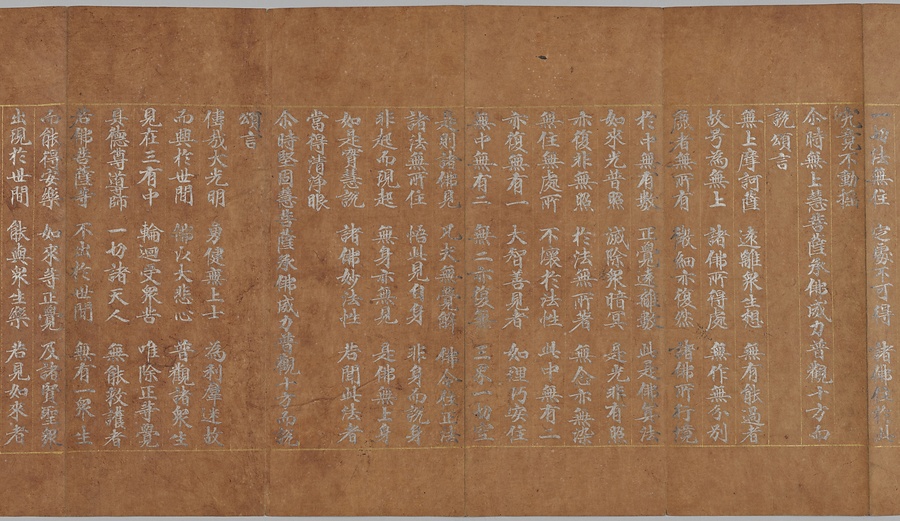 一切法無住 定處不可得 諸佛住於此
究竟不動搖
尒時無上慧菩薩承佛威力普觀十方而
說頌言
無上摩訶薩 遠離衆生想 無有能過者
故号為無上 諸佛所得處 無作無分別
麁者無所有 微細亦復然 諸佛所行境
於中無有數 正覺遠離數 此是佛真法
如來光普照 滅除衆暗冥 是光非有照
亦復非無照 於法無所著 無念亦無染
無住無處所 不壞於法性 此中無有二
亦復無有一 大智善見者 如理巧安住
無中無有二 無二亦復無 三界一切空
是則諸佛見 凡夫無覺解 佛令住正法
諸法無所住 悟此見自身 非身而說身
非起而現起 無身亦無見 是佛無上身
如是實慧說 諸佛妙法性 若聞此法者
當得清淨眼
尒時堅固慧菩薩承佛威力普觀十方而說
頌言
偉哉大光明 勇健無上士 為利羣迷故
而興於世間 佛以大悲心 普觀諸衆生
見在三有中 輪迴受衆苦 唯除正等覺
具德尊導師 一切諸天人 無能救護者
若佛菩薩等 不出於世間 無有一衆生
而能得安樂 如來等正覺 及諸賢聖衆
出現於世間 能與衆生樂 若見如來者